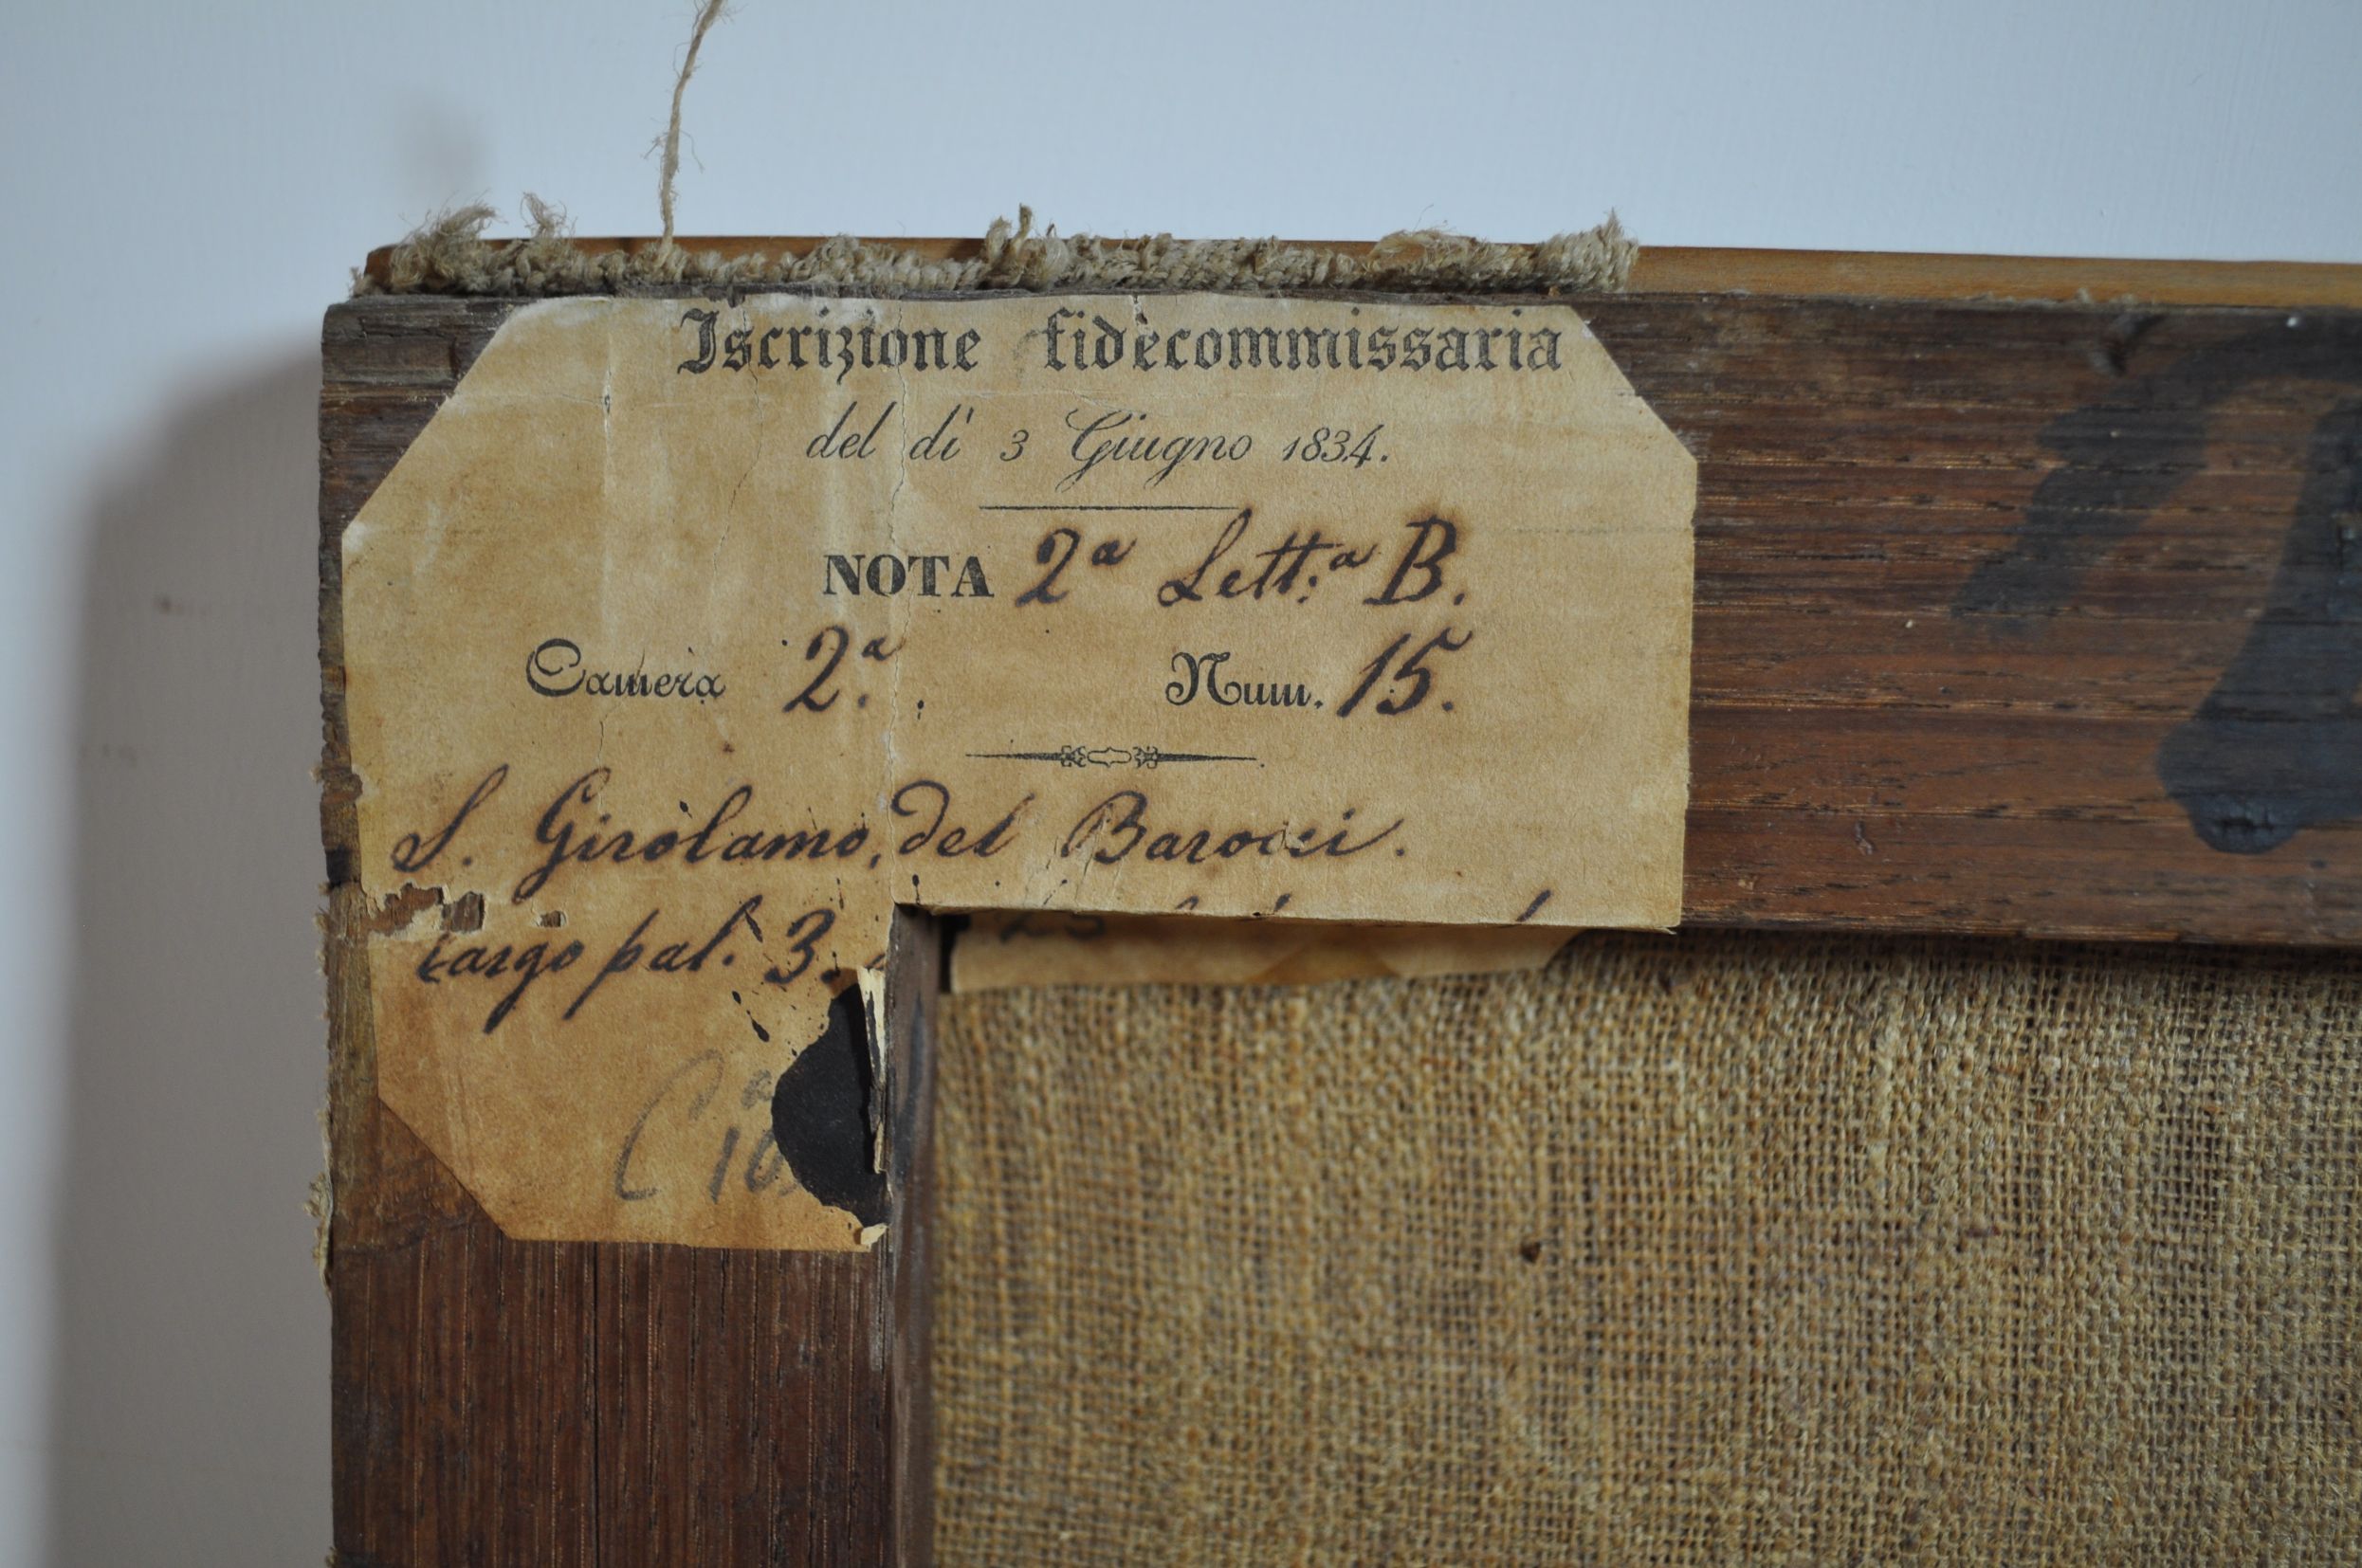 Iscrizione fidecommissaria
del dì 3 Giugno 1834.
NOTA 2ª Lett:ª B.
Camera 2.ª Num. 15.
S. Girolamo, del Barocci.
Largo pal. 3.
C 10